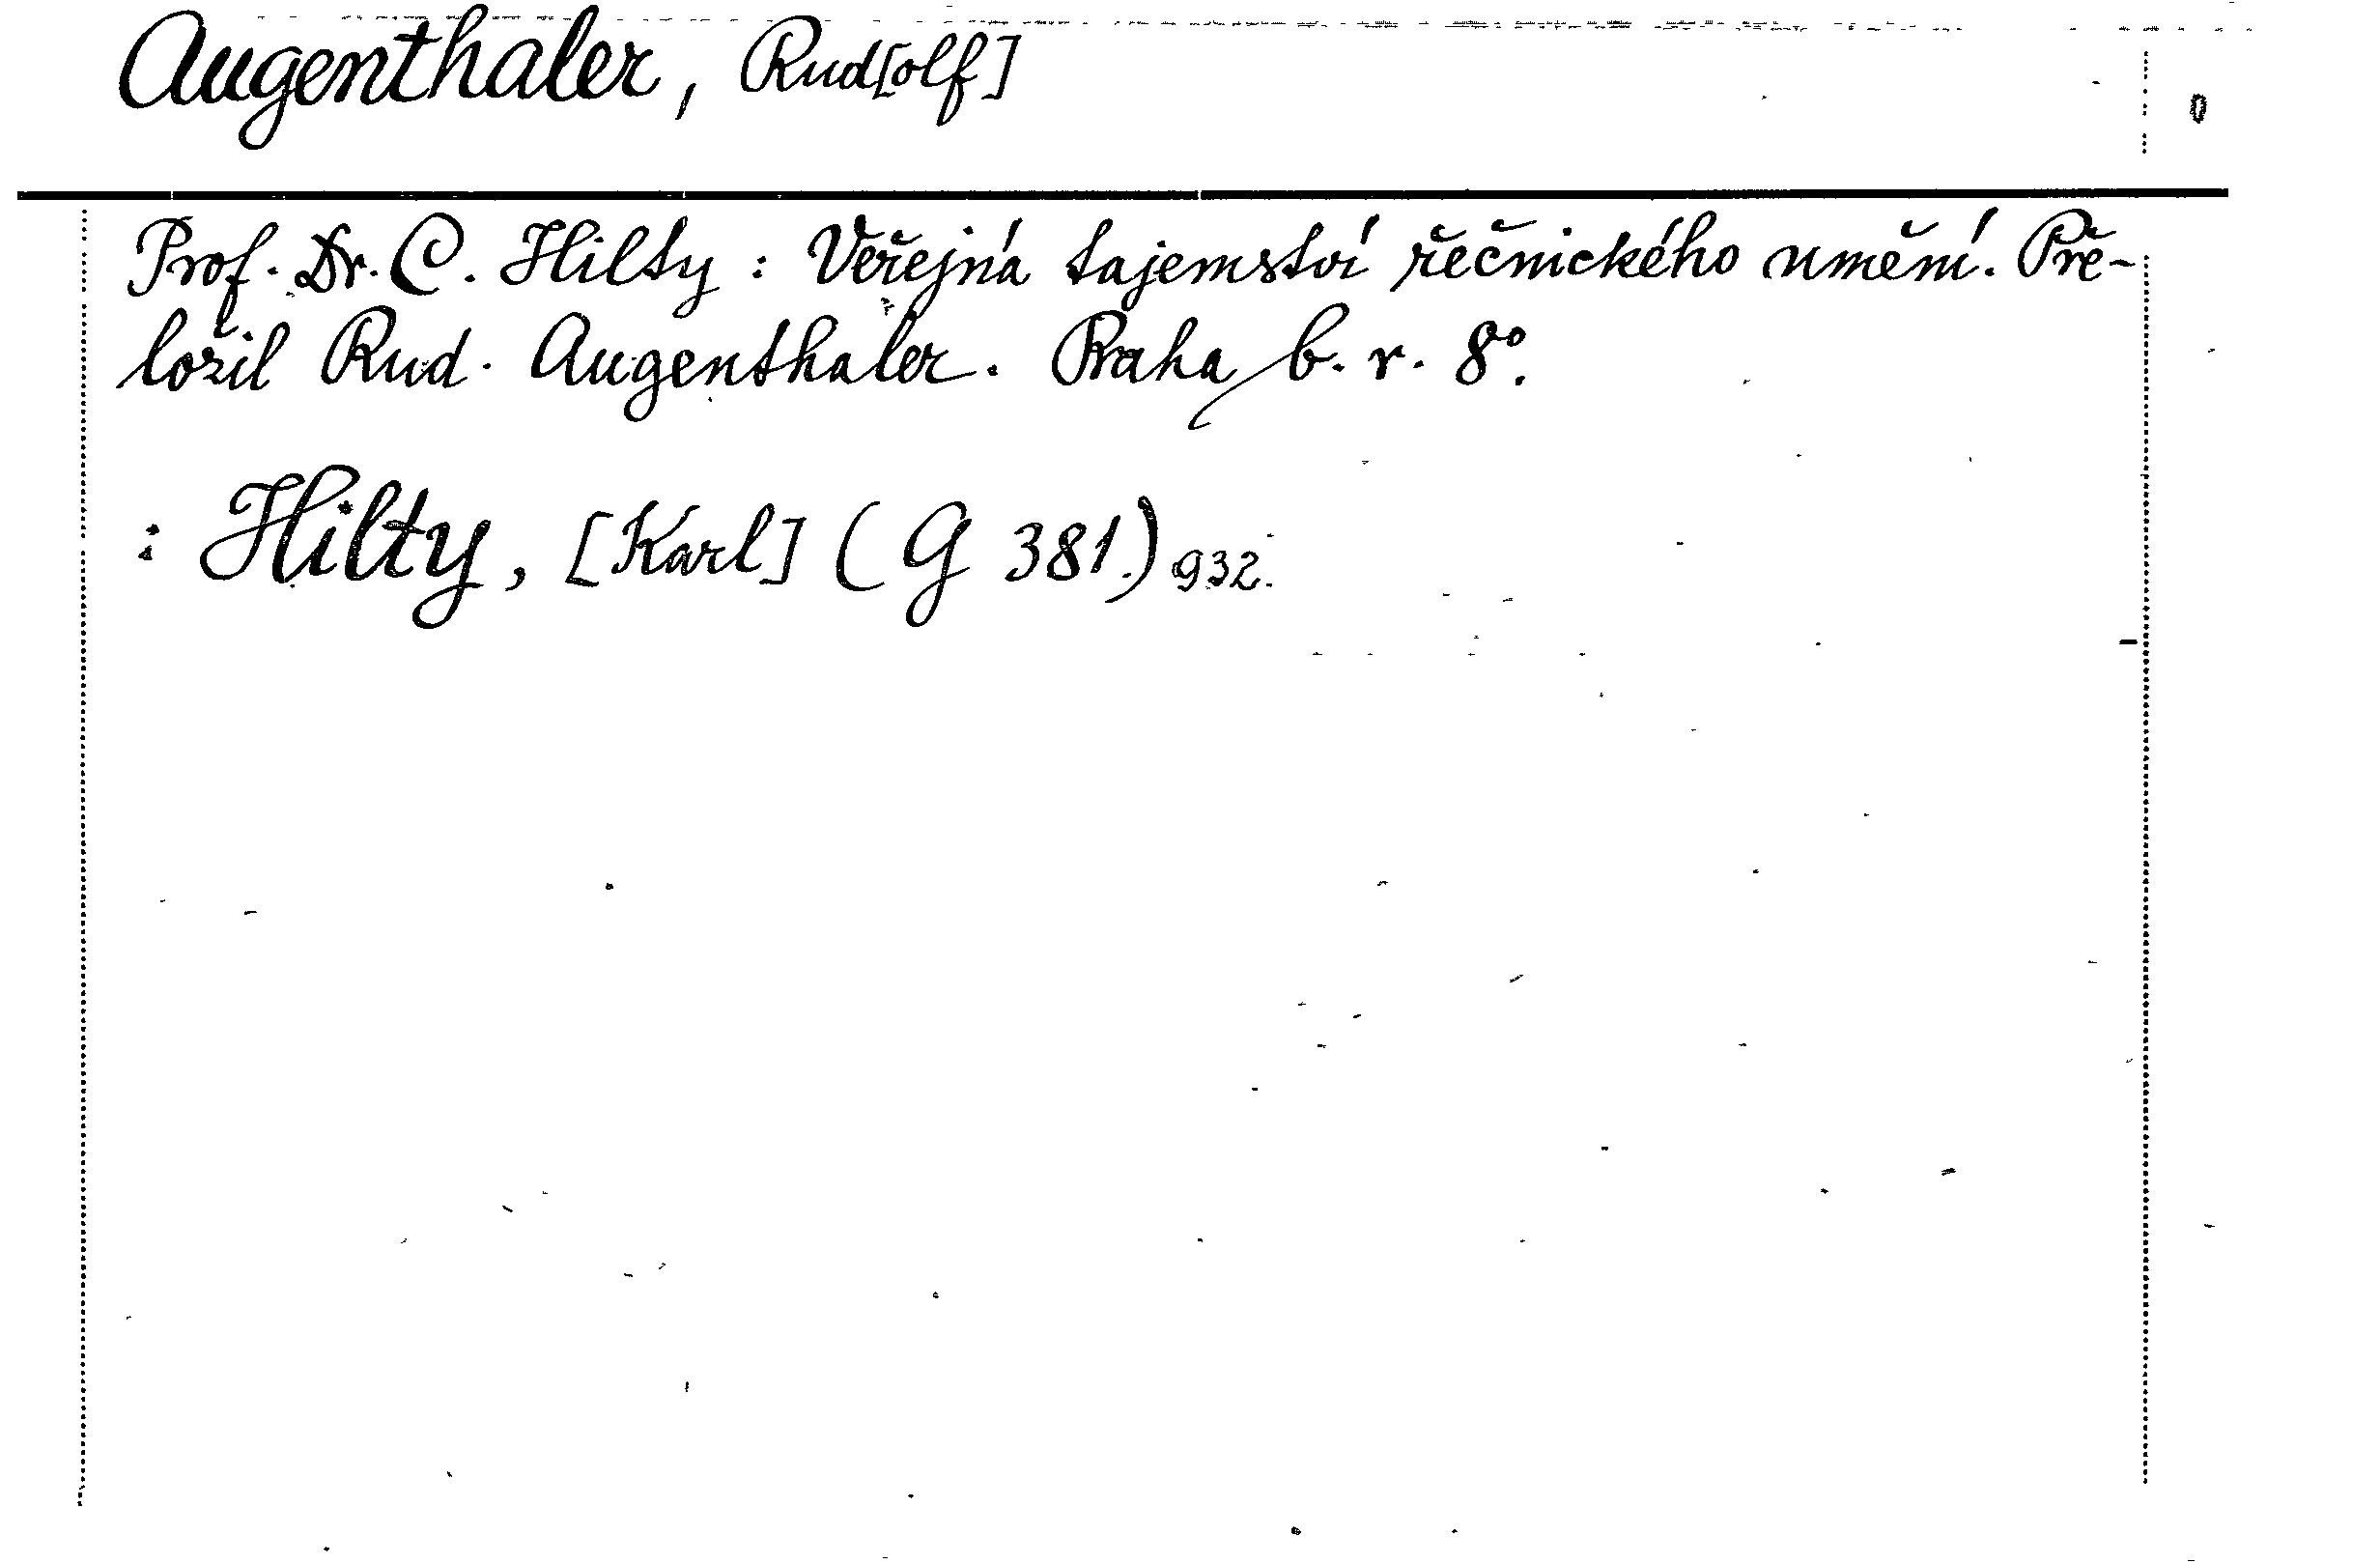 Augenthaler, Rud[olf]
Prof. Dr. C. Hilty: Veřejná tajemství řečnického umění. Pře-
ložil Rud. Augenthaler. Praha b. r. 8°.
: Hilty, [Karl] (G 381.) 932.